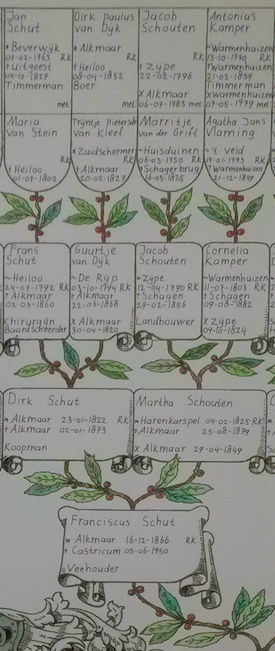 Jan
Schut
* Beverwijk
01-02-1763 RK
+ Uitgeest
04-10-1829
Timmerman
met
Dirk Paulus
van Dyk
* Alkmaar
RK
+ Heiloo
08-04-1852
Boer
met
Jacob
Schouten
+ Zype
22-02-1796
X Alkmaar
06-07-1783 met
Antonius
Kamper
~Warmenhuizen
13-10-1770 RK
+Warmenhuizen
21-02-1839
Timmerman
xWarmenhuizen
07-05-1799 met
Maria
van Stein
RK
+ Heiloo
01-07-1802
Tryntje Pieterse
van Kleef
* Zuidschermer
RK
+ Alkmaar
20-02-1827
Marritje
van der Grift
~Huisduinen
06-03-1750 RK
+Schagerbrug
16-05-1825
Agatha Jans
Vlaming
~'t Veld
19-01-1773 RK
+Warmenhuizen
21-12-1849
Frans
Schut
~Heiloo
24-07-1792 RK
+Alkmaar
02-03-1860
Chirurgijn
Guurtje
van Dyk
~De Ryp
03-10-1794 RK
+Alkmaar
22-07-1868
X Alkmaar
30-04-1820
Jacob
Schouten
*Zype
12-04-1790 RK
+Schagen
29-02-1856
Landbouwer
Cornelia
Kamper
~Warmenhuizen
11-07-1803 RK
+Schagen
09-08-1882
X Zype
09-10-1824
Dirk Schut
* Alkmaar 23-01-1822 RK
+ Alkmaar 02-01-1873
Koopman
Martha Schouten
*Harenkarspel 04-02-1825 RK
+Alkmaar 25-08-1879
X Alkmaar 29-04-1849
Franciscus Schut
* Alkmaar 16-12-1866 RK
+ Castricum 05-06-1950
Veehouder